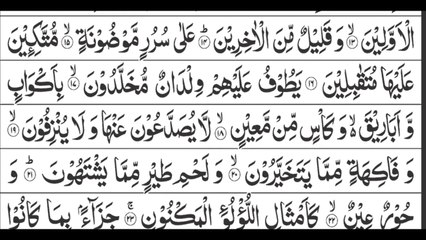 الْاَوَّلِيْنَ ۙ﴿۱۳﴾ وَ قَلِيْلٌ مِّنَ الْاٰخِرِيْنَ ؕ﴿۱۴﴾ عَلٰى سُرُرٍ مَّوْضُوْنَةٍ ۙ﴿۱۵﴾ مُّتَّكِـِٕيْنَ
عَلَيْهَا مُتَقٰبِلِيْنَ ﴿۱۶﴾ يَطُوْفُ عَلَيْهِمْ وِلْدَانٌ مُّخَلَّدُوْنَ ۙ﴿۱۷﴾ بِاَكْوَابٍ
وَّ اَبَارِيْقَ ۙ۬ وَ كَاْسٍ مِّنْ مَّعِيْنٍ ۙ﴿۱۸﴾ لَّا يُصَدَّعُوْنَ عَنْهَا وَ لَا يُنْزِفُوْنَ ۙ﴿۱۹﴾
وَ فَاكِهَةٍ مِّمَّا يَتَخَيَّرُوْنَ ۙ﴿۲۰﴾ وَ لَحْمِ طَيْرٍ مِّمَّا يَشْتَهُوْنَ ؕ﴿۲۱﴾ وَ
حُوْرٌ عِيْنٌ ۙ﴿۲۲﴾ كَاَمْثَالِ اللُّؤْلُؤِ الْمَكْنُوْنِ ۚ﴿۲۳﴾ جَزَآءًۢ بِمَا كَانُوْا